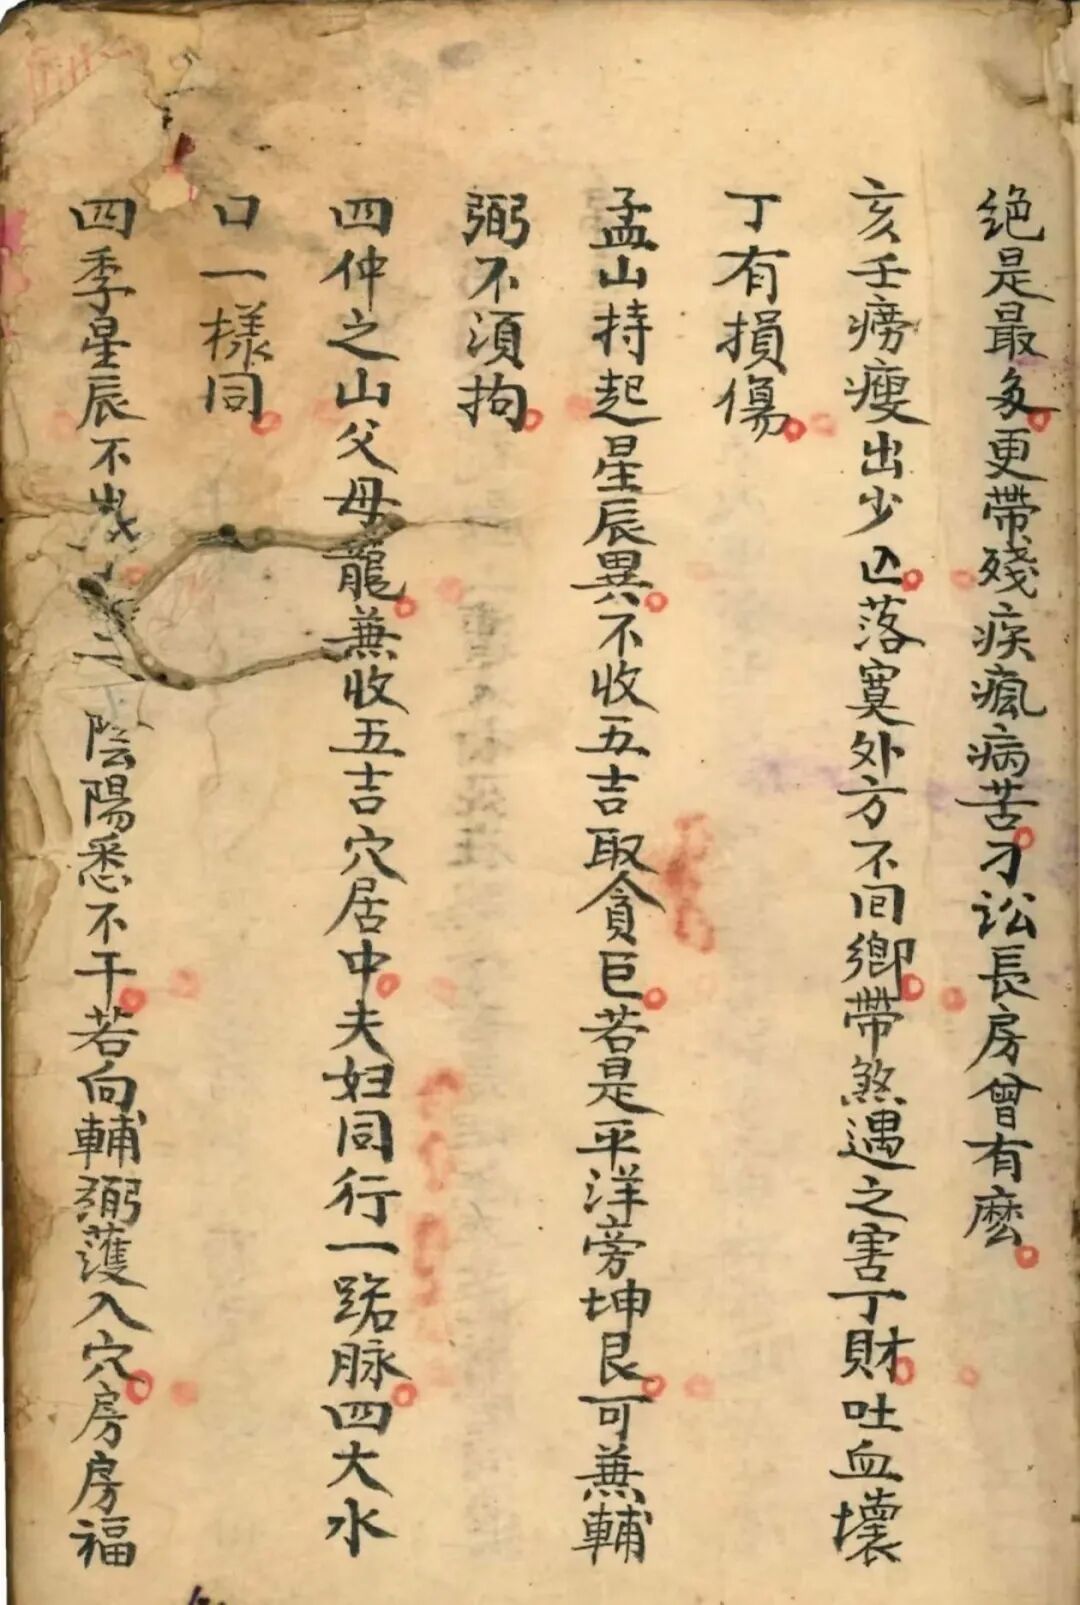 绝是最多更帶殘疾瘋病苦刁訟長房曾有麽
亥壬癆瘦出少亡落寞外方不囘鄉帶煞遇之害丁財吐血壞
丁有損傷
孟山持起星辰異不收五吉取貪巨若是平洋旁坤艮可兼輔
弼不須拘
四仲之山父母龍兼收五吉穴居中夫妇同行一路脉四大水
口一樣同
四季星辰不 二 陰陽悉不干若向輔弼蔓入穴房房福